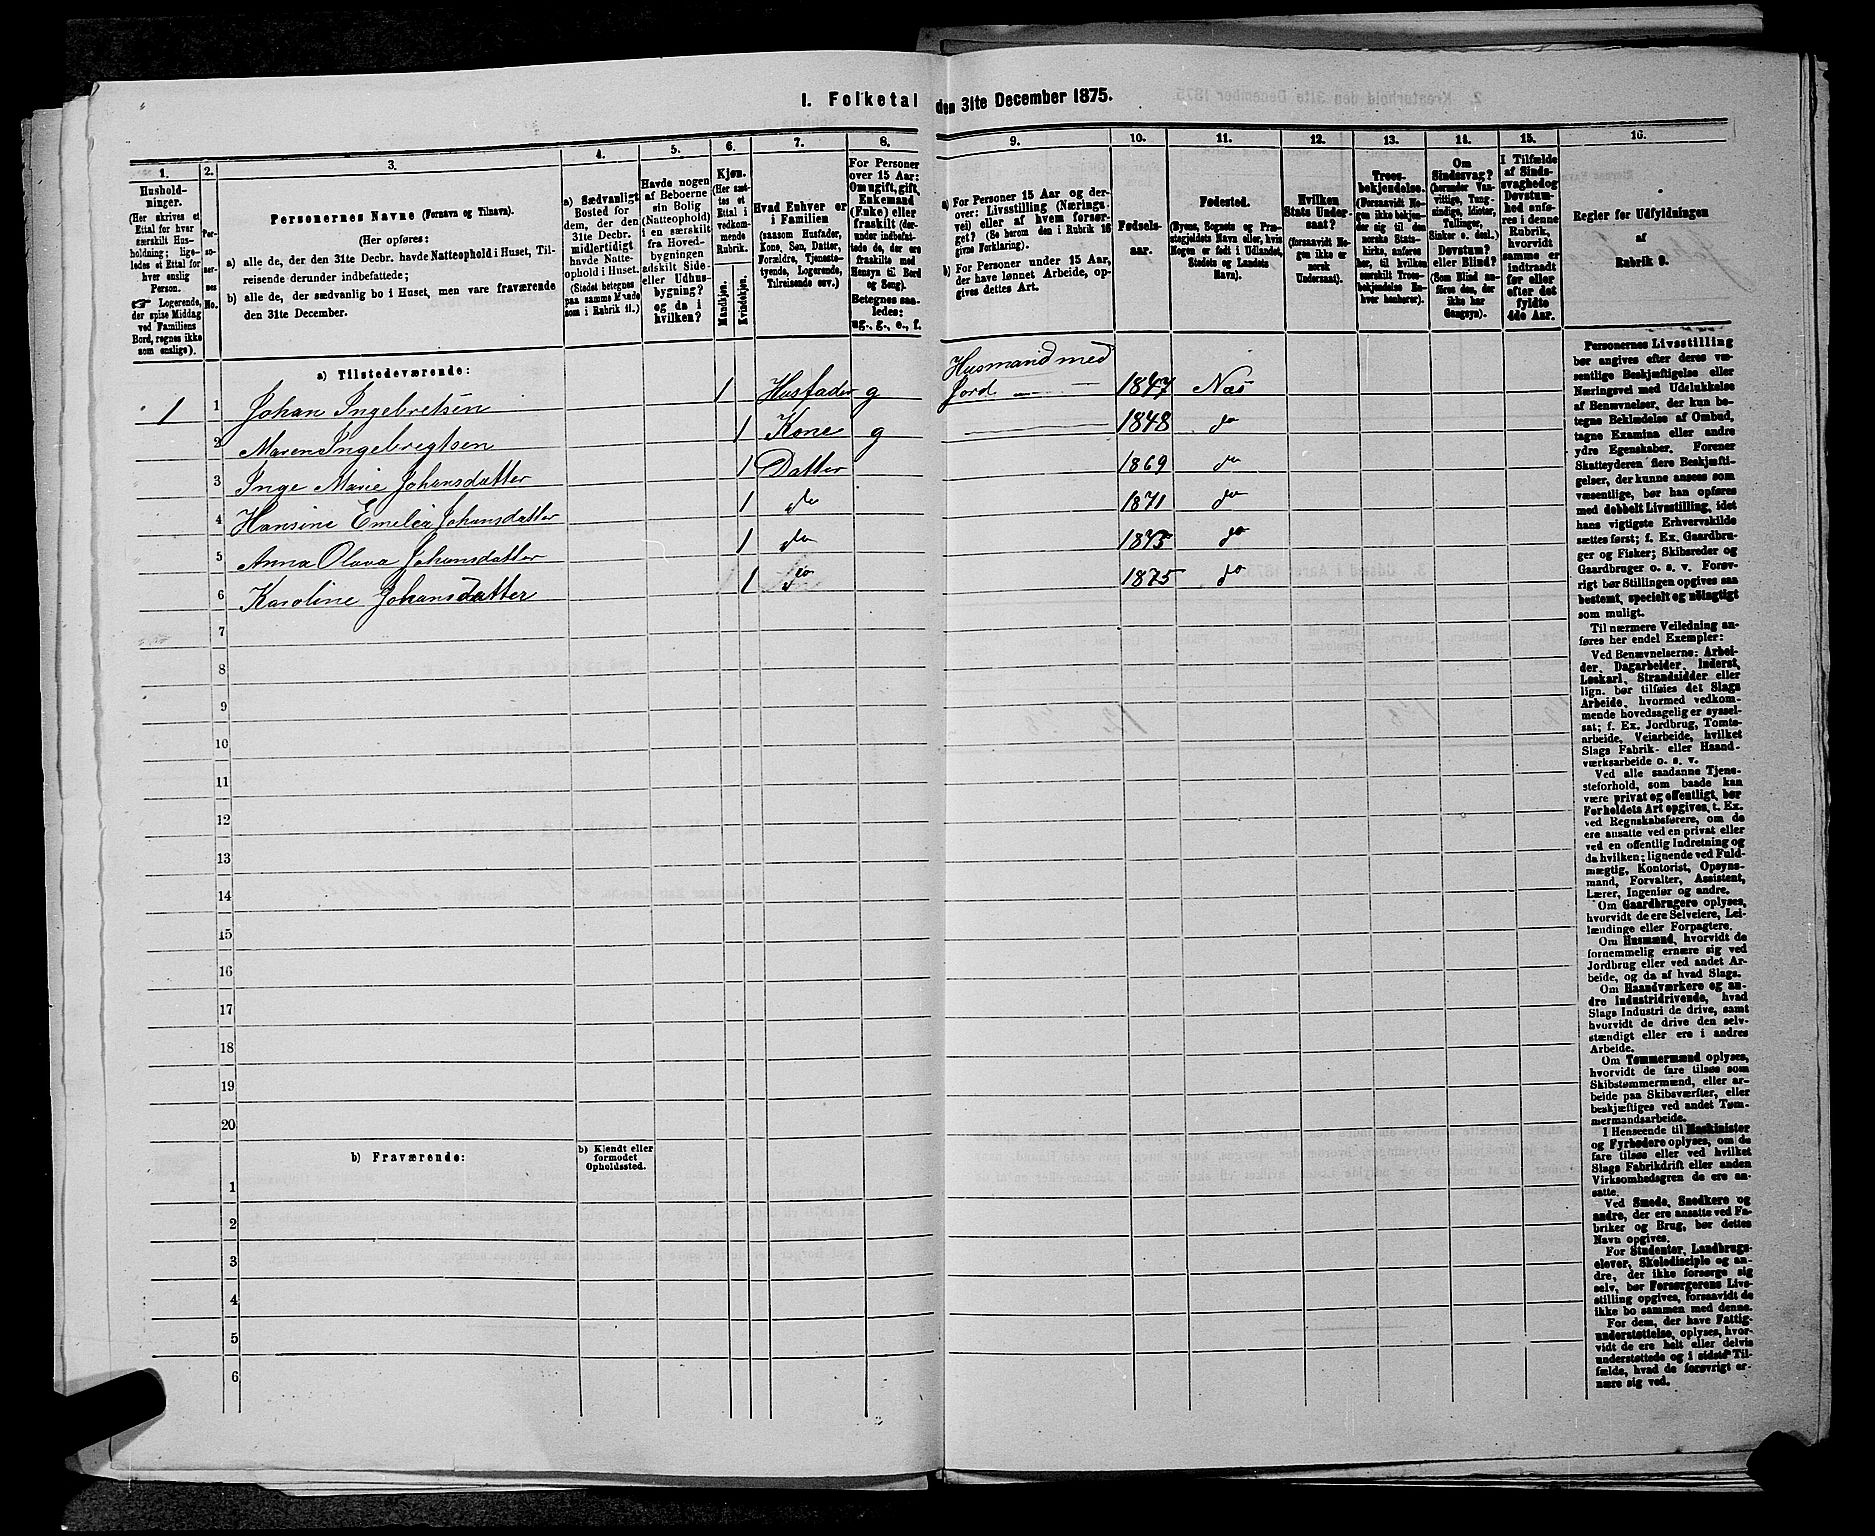 I. Folketal den 31te December 1875.
1.
Hushold-
ninger.
(Her skrives et
Ettal for hver
særskilt Hus-
holdning; lige-
ledes et Ettal for
hver enslig
Person.
☞ Logerende,
der spise Middag
ved Familiens
Bord, regnes ikke
som enslige).
2.
Per-
so-
ner-
nes
No.
3.
Personernes Navne (Fornavn og Tilnavn).
(Her opføres:
a) alle de, der den 31te Decbr. havde Natteophold i Huset, Til-
reisende derunder indbefattede;
b) alle de, der sædvanlig bo i Huset, men vare fraværende
den 31te December.
4.
a) Sædvanligt
Bosted for
dem, der den
31te Decbr.
midlertidigt
havde Natte-
ophold i Huset.
(Stedet betegnes
paa samme Maade
som i Rubrik 11.)
5.
Havde nogen
af Beboerne
sin Bolig
(Natteophold)
i en særskilt
fra Hoved-
bygningen
adskilt Side-
eller Udhus-
bygning?
og da i
hvilken?
6.
Kjøn.
(Her sæt-
tes et
Ettal i
vedkom-
mende
Rubrik.
Mandkjøn.
Kvindekjøn.
7.
Hvad Enhver er
i Familien
(saasom Husfader,
Kone, Søn, Datter,
Forældre, Tjeneste-
tyende, Logerende,
Tilreisende osv.)
8.
For Personer
over 15 Aar:
Om ugift, gift,
Enkemand
(Enke) eller
fraskilt (der-
under indbefat-
tede de, der ere
fraskilte med
Hensyn til Bord
og Seng).
Betegnes saa-
ledes:
ug., g., e., f.
9.
a) For Personer 15 Aar og der-
over: Livsstilling (Nærings-
vei) eller af hvem forsør-
get? (Se herom den i Rubrik 16
givne Forklaring).
b) For Personer under 15 Aar,
der have lønnet Arbeide, op-
gives dettes Art.
10.
Fødsels-
aar.
11.
Fødested.
(Byens, Sognets og Præ-
stegjeldets Navn eller, hvis
Nogen er født i Udlandet,
Stedets og Landets
Navn).
12.
Hvilken
Stats Under-
saat?
(forsaavidt No-
gen ikke er
norsk
Undersaat).
13.
Troes-
bekjendelse.
(Forsaavidt No-
gen ikke bekjen-
der sig til den
norske Stats-
kirke, anføres
her, til hvilken
særskilt Troes-
bekjendelse En-
hver henhører).
14.
Om
Sindssvag?
(herunder Van-
vittige, Tung-
sindige, Idioter,
Tullinger,
Sinker o. desl.)
Døvstum?
eller Blind?
(Som Blind an-
føres den, der
ikke har
Gangsyn).
15.
I Tilfælde
af Sinds-
svaghed og
Døvstum-
hed anfø-
res i denne
Rubrik,
hvorvidt
samme er
indtraadt
før eller
efter det
fyldte
4de Aar.
16.
Regler for Udfyldningen
af
Rubrik 9.
a) Tilstedeværende:
1 1 Johan Ingebretsen 1 Husfader g Husmand med
Jord 1847 Næs
2 Maren Ingebregtsen 1 Kone g 1848 do
3 Inge Marie Johansdatter 1 Datter 1869 do
4 Hansine Emelia Johansdatter 1 do 1871 do
5 Anna Olava Johansdatter 1 do 1873 do
6 Karoline Johansdatter 1 do 1875 do
7
8
9
10
11
12
13
14
15
16
17
18
19
20
b) Fraværende:
b) Kjendt eller
formodet
Opholdssted.
1
2
3
4
5
6
Personernes Livsstilling
bør angives efter deres væ-
sentlige Beskjæftigelse eller
Næringsvei med Udelukkelse
af Benævnelser, der kun be-
tegne Beklædelse af Ombud,
tagne Examina eller andre
ydre Egenskaber. Forener
Skatteyderen flere Beskjæfti-
gelser, der kunne ansees som
væsentlige, bør han opføres
med dobbelt Livsstilling, idet
hans vigtigste Erhvervskilde
sættes først; f. Ex. Gaardbru-
ger og Fisker; Skibsreder og
Gaardbruger o. s. v. Forøv-
rigt bør Stillingen opgives saa
bestemt, specielt og nøiagtigt
som muligt.
Til nærmere Veiledning an-
føres her endel Exempler:
Ved Benævnelserne: Arbei-
der, Dagarbeider, Inderst,
Løskarl, Strandsidder eller
lign. bør tilføies det Slags
Arbeide, hvormed vedkom-
mende hovedsagelig er syssel-
sat; f. Ex. Jordbrug, Tomte-
arbeide, Veiarbeide, hvilket
Slags Fabrik- eller Haand-
værksarbeide o. s. v.
Ved alle saadanne Tjene-
steforhold, som baade kan
være privat og offentligt, bør
Forholdets Art opgives, t. Ex.
ved Regnskabsførere, om de
ere ansatte ved en privat eller
ved en offentlig Indretning og
da hvilken; lignende ved Fuld-
mægtig, Kontorist, Opsyns-
mand, Forvalter, Assistent,
Lærer, Ingeniør og andre.
Om Gaardbrugere oplyses,
hvorvidt de ere Selveiere, Lei-
lændinge eller Forpagtere.
Om Husmænd, hvorvidt de
fornemmelig ernære sig ved
Jordbrug eller ved andet Ar-
beide, og da af hvad Slags.
Om Haandværkere og an-
dre Industridrivende, hvad
Slags Industri de drive, samt
hvorvidt de drive den selv-
stændigt eller ere i andres
Arbeide.
Om Tømmermænd oplyses,
hvorvidt de fare tilsøs som
Skibstømmermænd, eller ar-
beide paa Skibsværfter, eller
beskjæftiges ved andet Tøm-
mermandsarbeide.
I Henseende til Maskinister
og Fyrbødere oplyses, om de
fare tilsøs eller ved hvilket
Slags Fabrikdrift eller anden
Virksomhedsgren de ere an-
satte.
Ved Smede, Snedkere og
andre, der ere ansatte ved Fa-
briker og Brug, bør dettes
Navn opgives.
For Studenter, Landbrugs-
elever, Skoledisciple og an-
dre, der ikke forsørge sig
selv, bør Forsørgerens Livs-
stilling opgives, forsaavidt de
ikke bo sammen med denne.
For dem, der have Fattig-
understøttelse, oplyses, hvor-
vidt de ere helt eller delvis
understøttede og i sidste Til-
fælde, hvad de forøvrigt er-
nære sig ved.